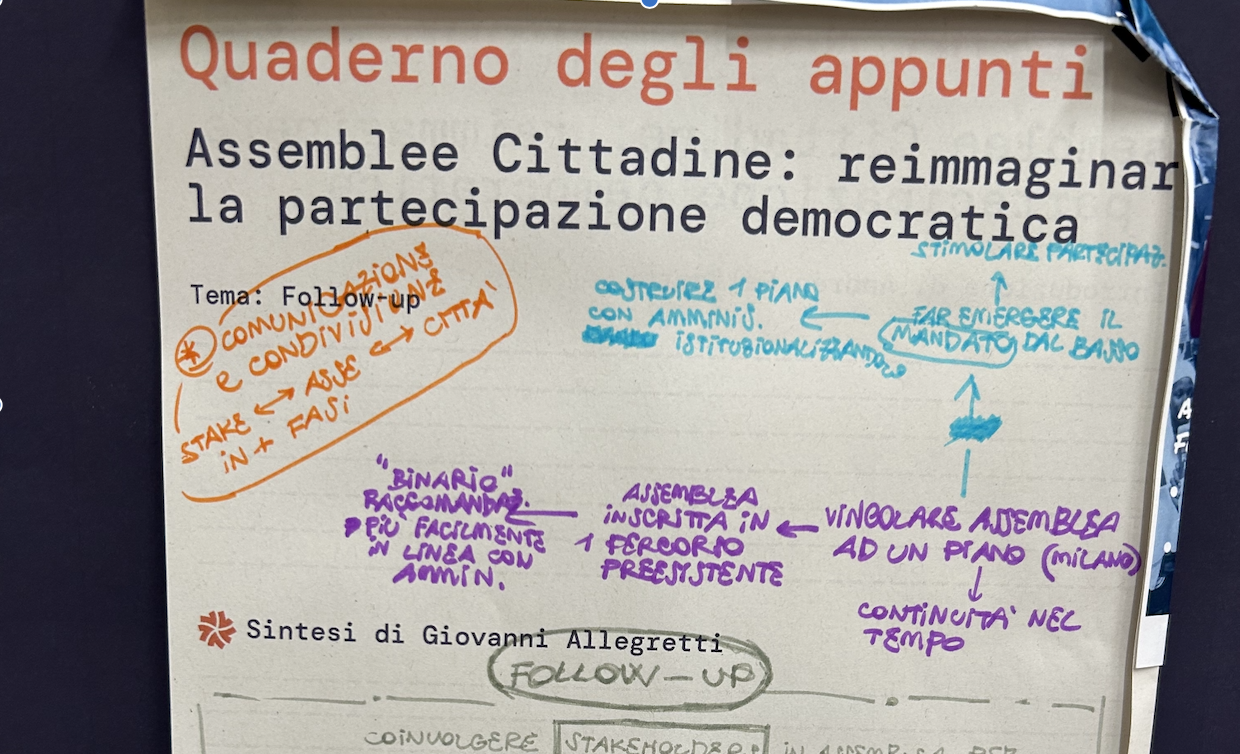 Quaderno degli appunti
Assemblee Cittadine: reimmaginar
la partecipazione democratica
Tema: Follow-up
* COMUNICAZIONE
E CONDIVISIONE
STAKE ↔ ASSE ↔ CITTA'
IN + FASI
STIMOLARE PARTECIPAZ.
FAR EMERGERE IL
MANDATO DAL BASSO
COSTRUIRE 1 PIANO
CON AMMINIS.
ISTITUZIONALIZZANDOLO
VINCOLARE ASSEMBLEA
AD UN PIANO (MILANO)
CONTINUITA' NEL
TEMPO
ASSEMBLEA
INSCRITTA IN
1 PERCORSO
PREESISTENTE
"BINARIO"
RACCOMANDAZ.
PIÙ FACILMENTE
IN LINEA CON
AMMIN.
Sintesi di Giovanni Allegretti
FOLLOW-UP
COINVOLGERE STAKEHOLDER IN ASSEMBLEA PER